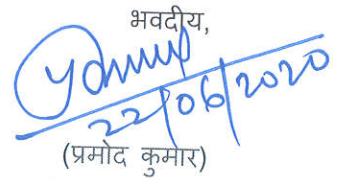 भवदीय,
22/06/2020
(प्रमोद कुमार)